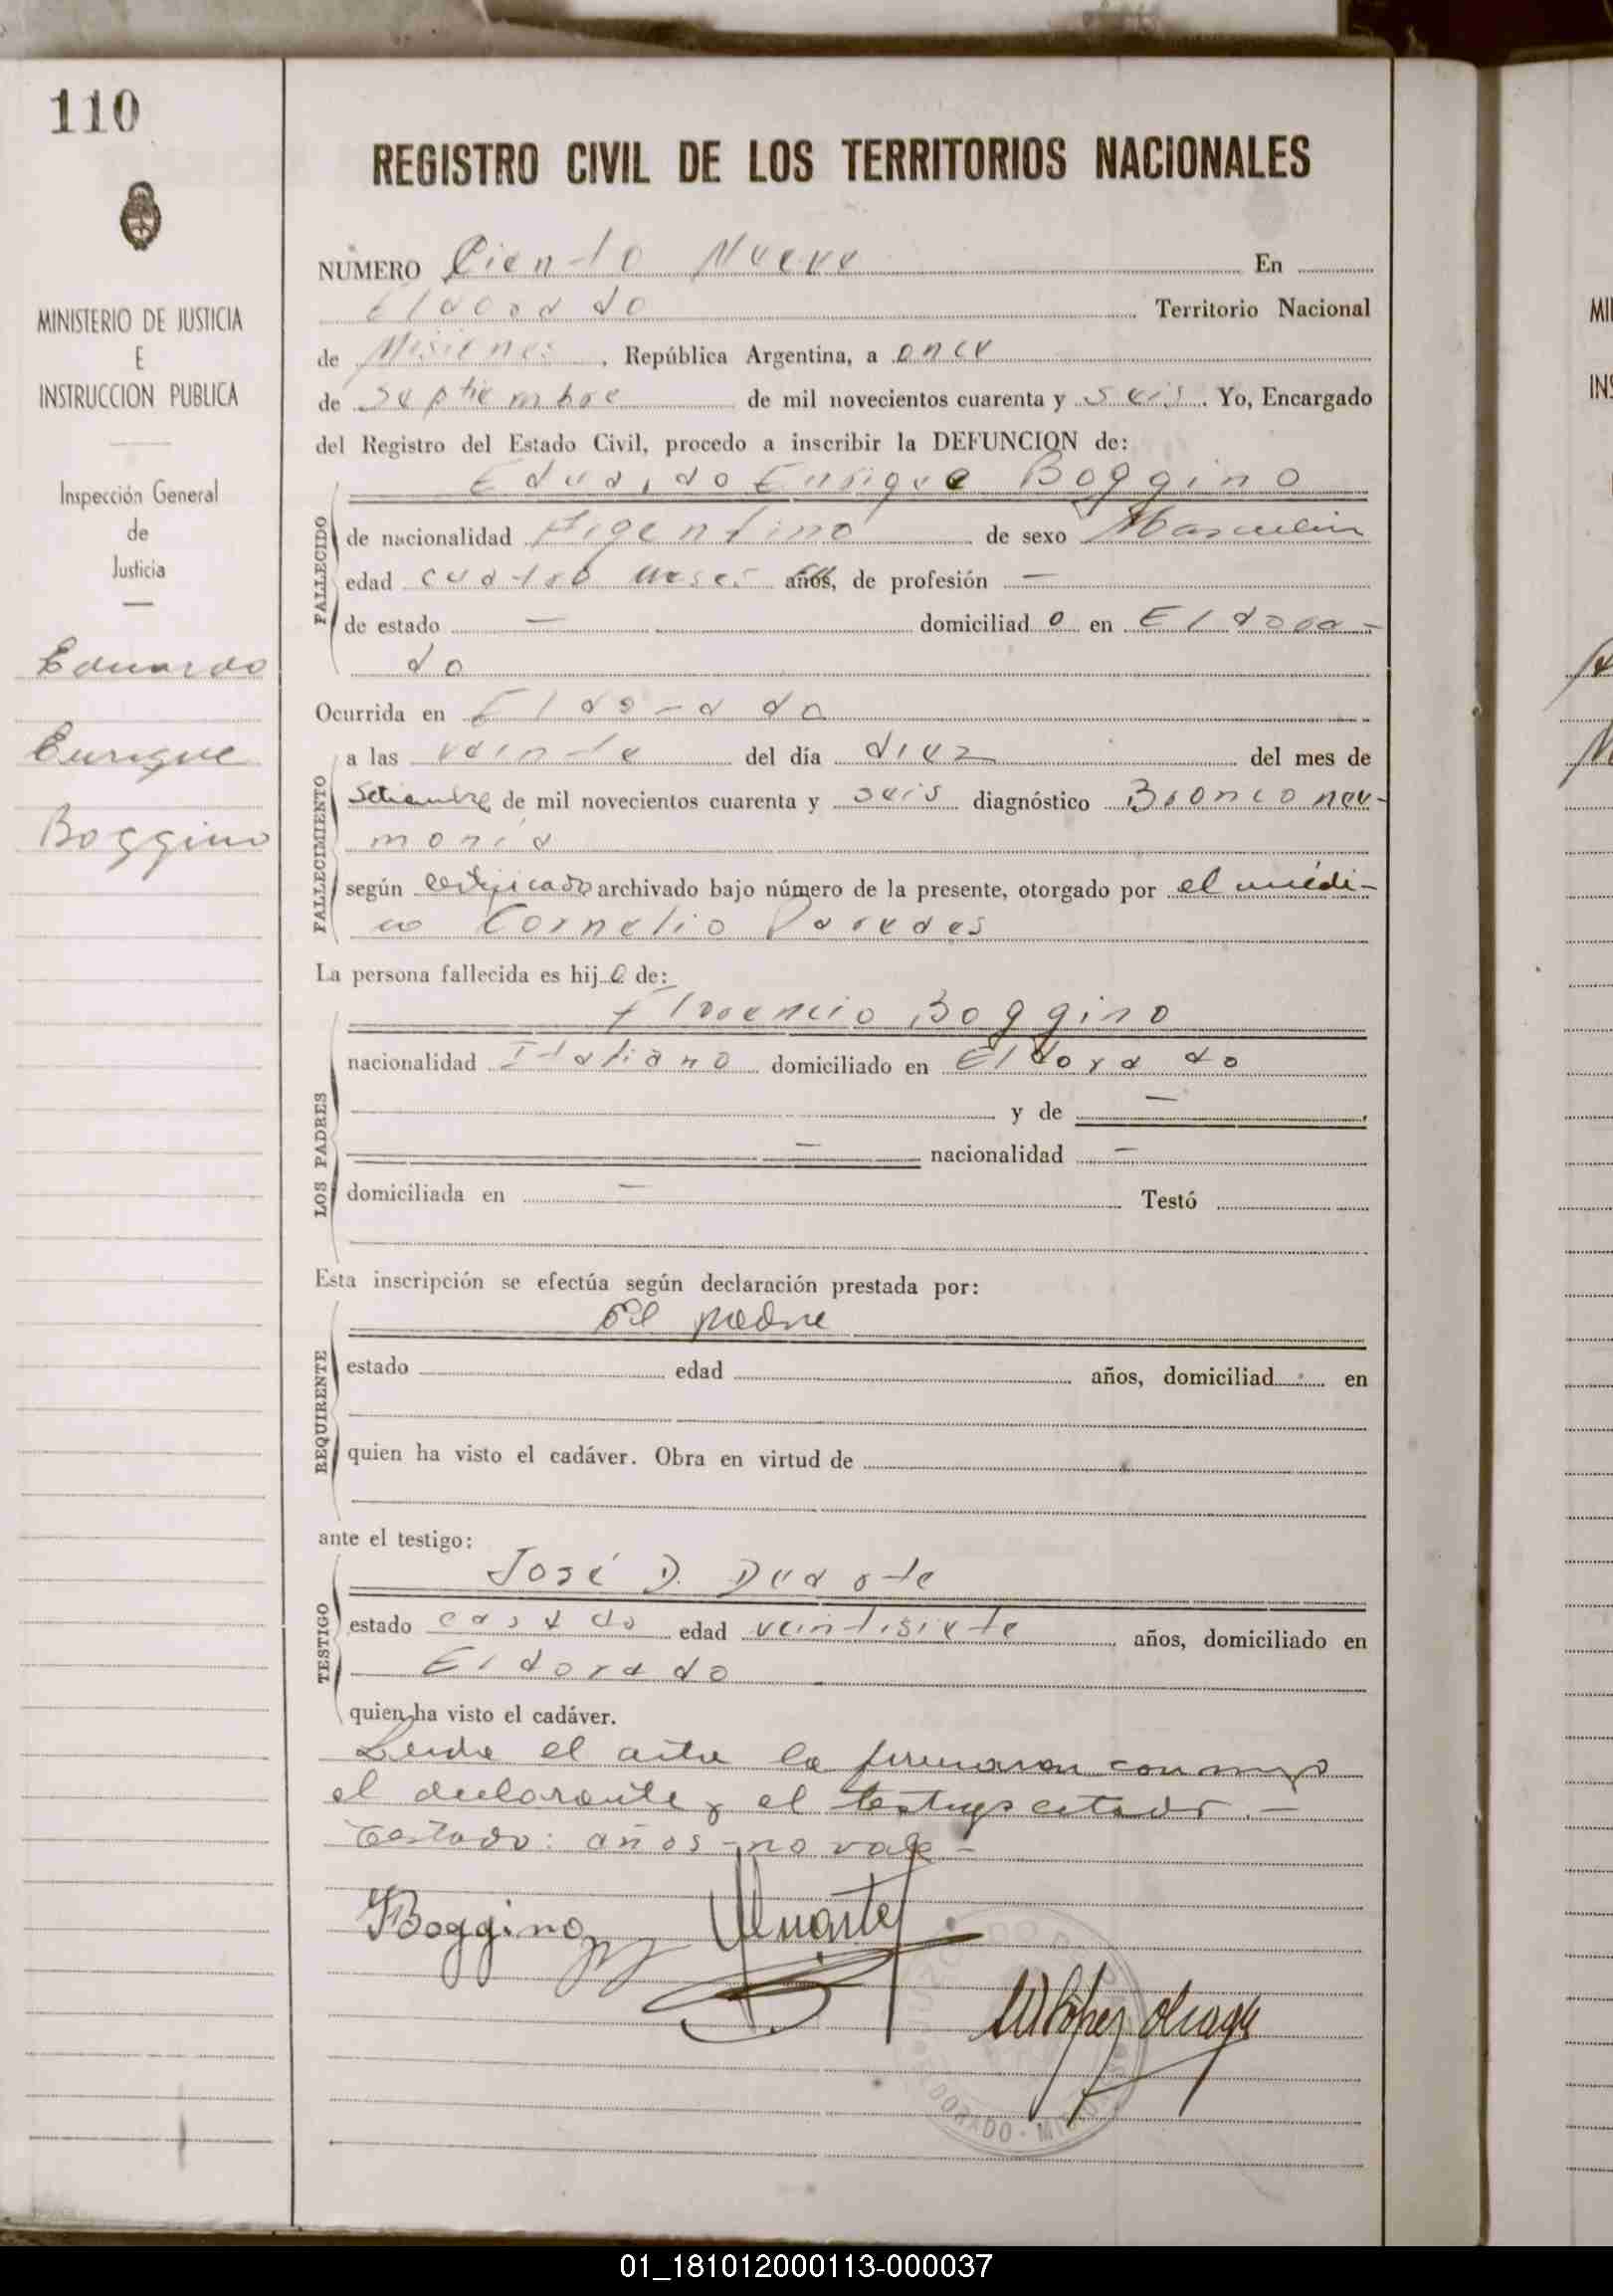 110
MINISTERIO DE JUSTICIA
E
INSTRUCCION PUBLICA
Inspección General
de
Justicia
Eduardo
Enrique
Boggino
REGISTRO CIVIL DE LOS TERRITORIOS NACIONALES
NÚMERO Ciento Nueve En
Eldorado Territorio Nacional
de Misiones, República Argentina, a once
de Septiembre de mil novecientos cuarenta y seis. Yo, Encargado
del Registro del Estado Civil, procedo a inscribir la DEFUNCION de:
Eduardo Enrique Boggino
FALLECIDO
de nacionalidad Argentino de sexo Masculin
edad cuatro meses años, de profesión —
de estado — domiciliado en Eldora-
do
Ocurrida en Eldorado
FALLECIMIENTO
a las veinte del día diez del mes de
Setiembre de mil novecientos cuarenta y seis diagnóstico Bronconeu-
monia
según certificado archivado bajo número de la presente, otorgado por el médi-
co Cornelio Paredes
La persona fallecida es hijo de:
LOS PADRES
Florencio Boggino
nacionalidad Italiano domiciliado en Eldorado
y de —
— nacionalidad —
domiciliada en — Testó
Esta inscripción se efectúa según declaración prestada por:
REQUIRENTE
El padre
estado edad años, domiciliad en
quien ha visto el cadáver. Obra en virtud de
ante el testigo:
TESTIGO
José D. Duarte
estado casado edad veintisiete años, domiciliado en
Eldorado
quien ha visto el cadáver.
Leida el acta la firmaron conmigo
el declarante y el testigo citado.—
Testado: años - no vale -
Boggino Duarte
López
DORADO